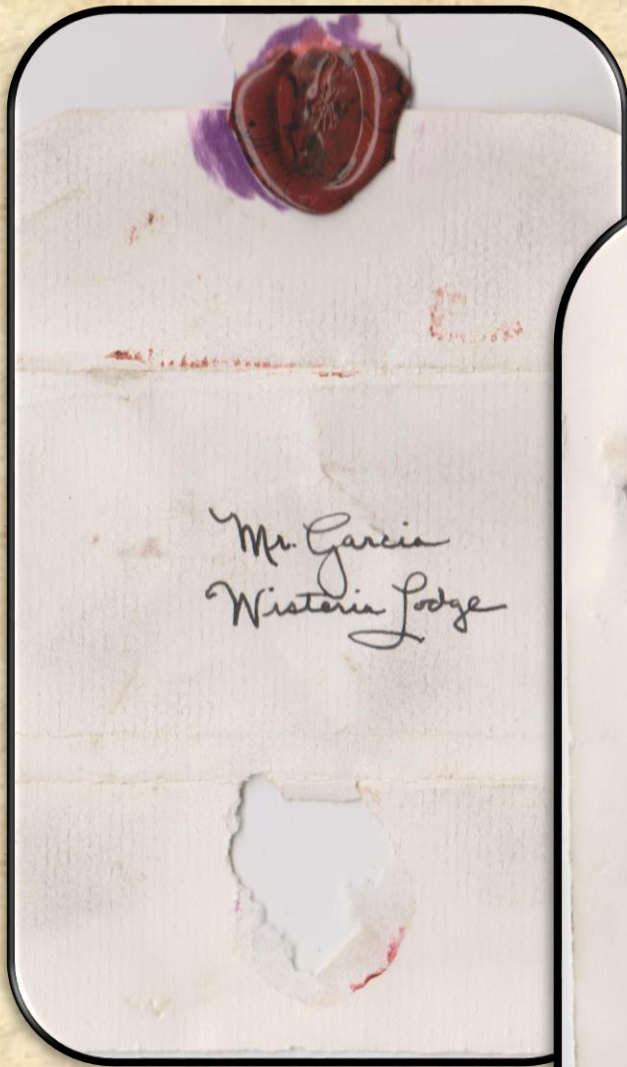 Mr. Garcia
Wisteria Lodge